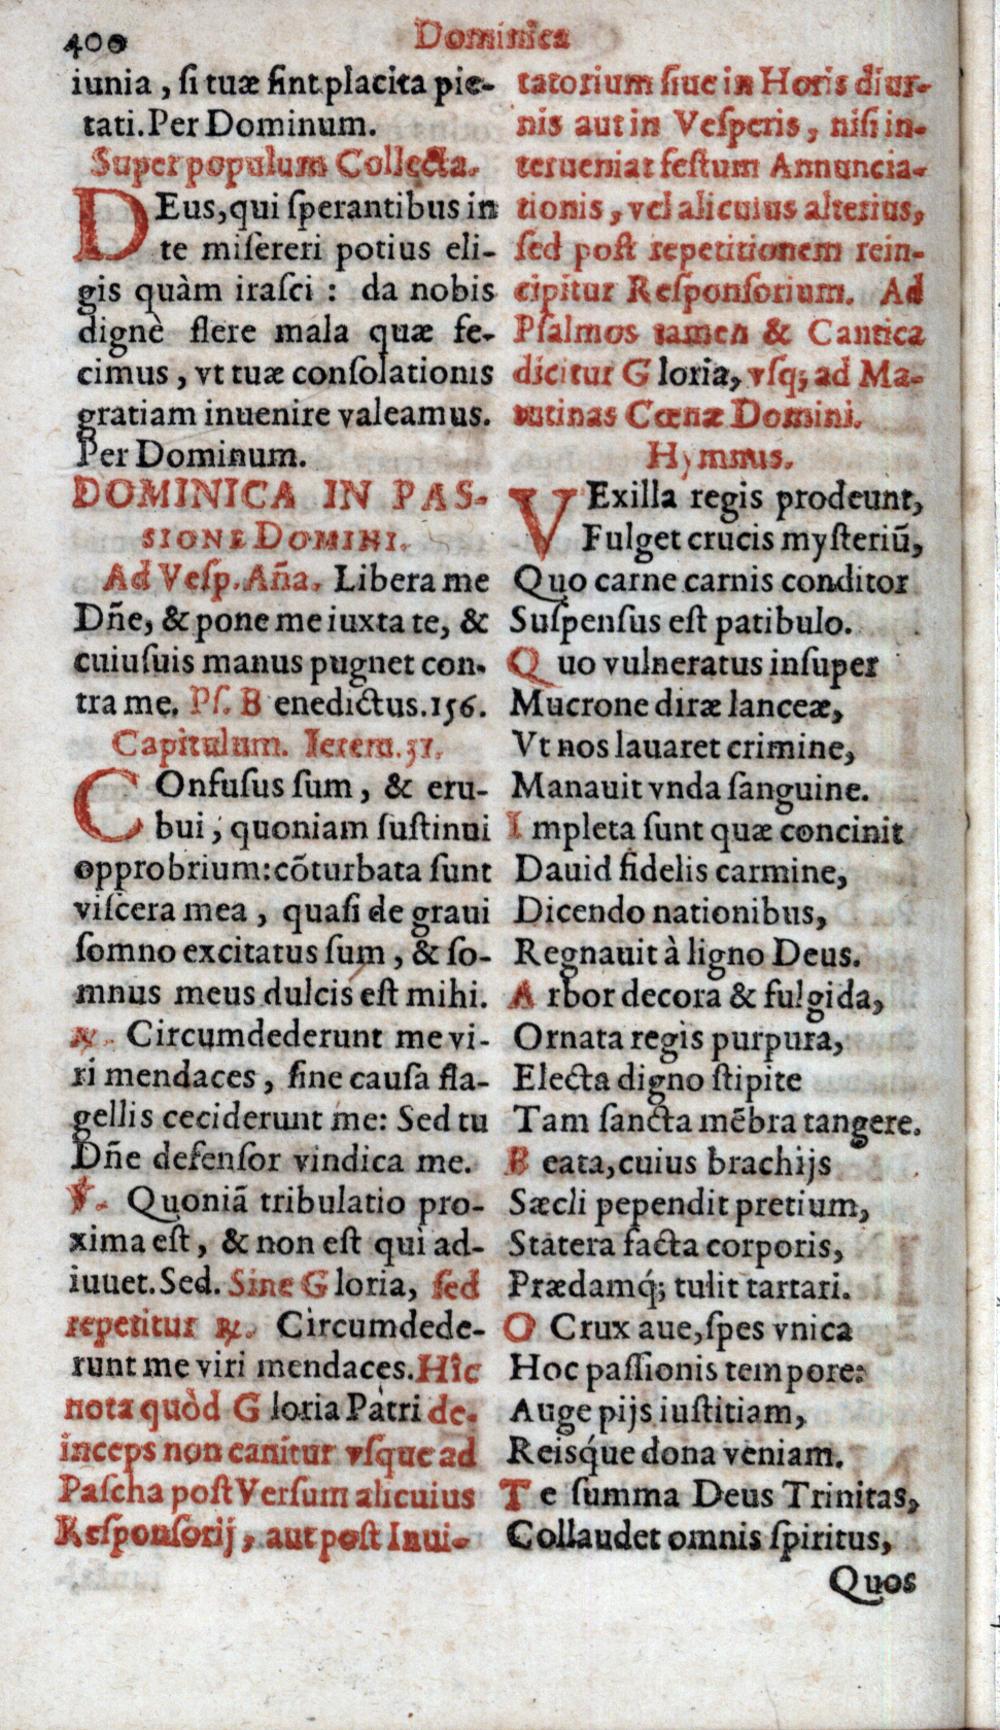 400
Dominica
iunia, ſi tuæ ſint placita pie-
tati. Per Dominum.
Super populum Collecta.
DEus, qui ſperantibus in
te miſereri potius eli-
gis quàm iraſci : da nobis
dignè flere mala quæ fe-
cimus, vt tuæ conſolationis
gratiam inuenire valeamus.
Per Dominum.
DOMINICA IN PAS-
SIONE DOMINI.
Ad Veſp. Aña. Libera me
Dñe, & pone me iuxta te, &
cuiuſuis manus pugnet con-
tra me. Pſ. Benedictus. 156.
Capitulum. Ierem. 31.
COnfuſus ſum, & eru-
bui, quoniam ſuſtinui
opprobrium: cõturbata ſunt
viſcera mea, quaſi de graui
ſomno excitatus ſum, & ſo-
mnus meus dulcis eſt mihi.
℟. Circumdederunt me vi-
ri mendaces, ſine cauſa fla-
gellis ceciderunt me: Sed tu
Dñe defenſor vindica me.
℣. Quoniã tribulatio pro-
xima eſt, & non eſt qui ad-
iuuet. Sed. Sine Gloria, ſed
repetitur ℟. Circumdede-
runt me viri mendaces. Hîc
nota quòd Gloria Patri de-
inceps non canitur vſque ad
Paſcha poſt Verſum alicuius
Reſponſorij, aut poſt Inui-
tatorium ſiue in Horis diur-
nis aut in Veſperis, niſi in-
terueniat feſtum Annuncia-
tionis, vel alicuius alterius,
ſed poſt repetitionem rein-
cipitur Reſponſorium. Ad
Pſalmos tamen & Cantica
dicitur Gloria, vſq; ad Ma-
tutinas Cœnæ Domini.
Hymnus.
VExilla regis prodeunt,
Fulget crucis myſteriũ,
Quo carne carnis conditor
Suſpenſus eſt patibulo.
Quo vulneratus inſuper
Mucrone diræ lanceæ,
Vt nos lauaret crimine,
Manauit vnda ſanguine.
Impleta ſunt quæ concinit
Dauid fidelis carmine,
Dicendo nationibus,
Regnauit à ligno Deus.
Arbor decora & fulgida,
Ornata regis purpura,
Electa digno ſtipite
Tam ſancta mẽbra tangere.
Beata, cuius brachijs
Sæcli pependit pretium,
Statera facta corporis,
Prædamq́; tulit tartari.
O Crux aue, ſpes vnica
Hoc paſſionis tempore:
Auge pijs iuſtitiam,
Reisq́ue dona veniam.
Te ſumma Deus Trinitas,
Collaudet omnis ſpiritus,
Quos